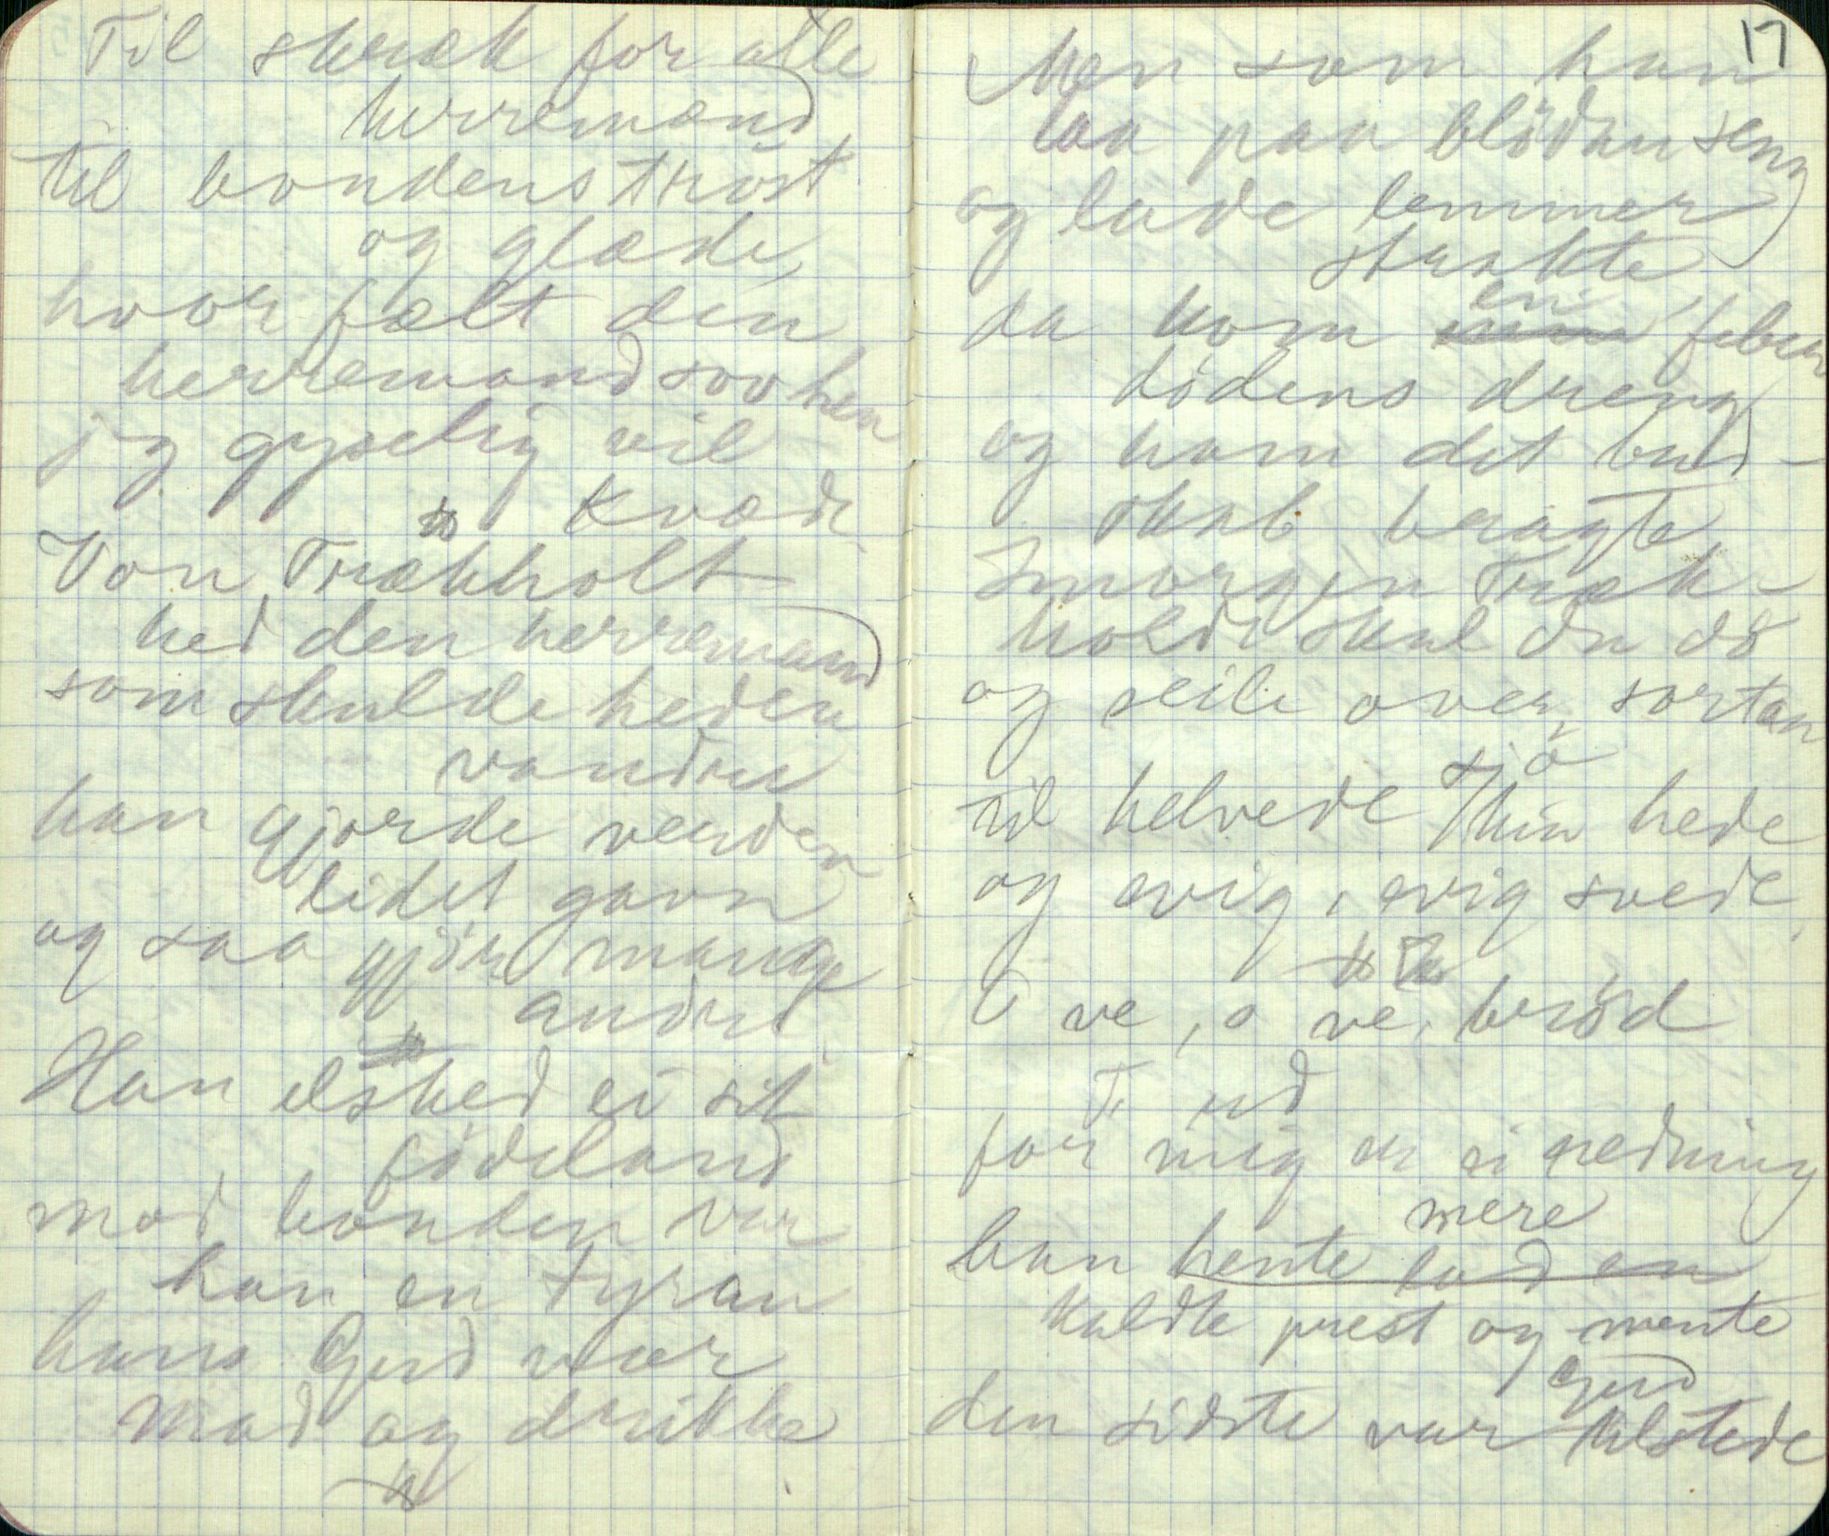 Til skræk for alle
herremænd
til bondens trøst
og glæde,
hvor fælt den
herremand sov hen
jeg gyselig vil
kvæde
Von Trækholt
hed den herremand
som skulde heden
vandre
han gjorde verden
lidet gavn
og saa gjør mange
andre
Han elsked ei sit
fødeland
mod bonden var
han en tyran
hans Gud var
mad og drikke
17
Men som han
laa paa blødan seng
og lade lemmer
strakte
da kom en feber
dødens dreng
og ham det bud-
skab bragte
Imorgen Træk-
holdt skal du dø
og seile over sortan
sjø
til helvede hin hede
og evig, evig svede
O ve, o ve, brød
T. ud
for mig er ei redning
mere
han hente lod en
kaldte prest og mente
Gud
den sidste var tilstede